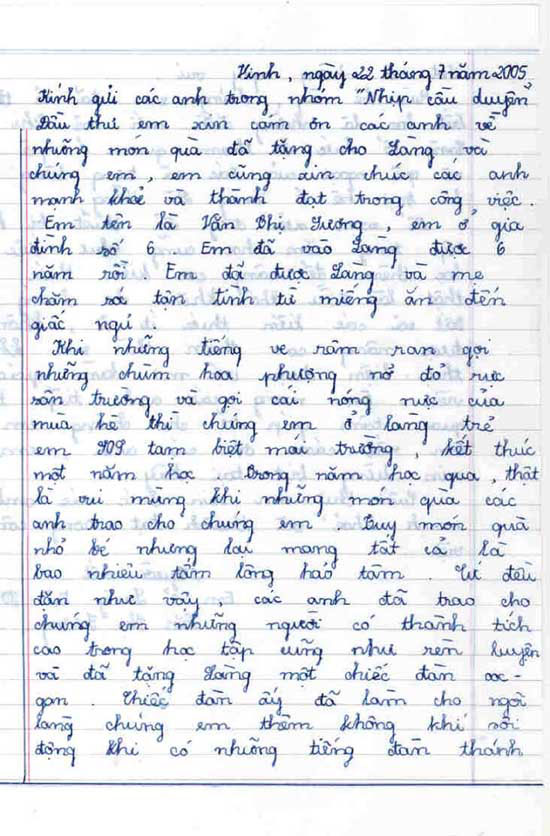 Vinh, ngày 22 tháng 7 năm 2005
Kính gửi các anh trong nhóm "Nhịp cầu duyên"
Đầu thư em xin cám ơn các anh về
những mon quà đã tặng cho Làng và
chúng em, em cũng xin chúc các anh
mạnh khoẻ và thành đạt trong công việc.
Em tên là Văn Thị Gương, em ở gia
đình số 6. Em đã vào Làng được 6
năm rồi. Em đã được Làng và mẹ
chăm sóc tận tình từ miếng ăn đến
giấc ngủ.
Khi những tiếng ve râm ran gọi
những chùm hoa phượng nở đỏ rực
sân trường và gọi cái nóng nực của
mùa hè thì chúng em ở làng trẻ
em SOS tạm biệt mái trường, kết thúc
một năm học. Trong năm học qua, thật
là vui mừng khi những món quà các
anh trao cho chúng em. Tuy món quà
nhỏ bé nhưng lại mang tất cả là
bao nhiêu tấm lòng hảo tâm. Cứ đều
đặn như vậy, các anh đã trao cho
chúng em những người có thành tích
cao trong học tập cũng như rèn luyện
và đã tặng Làng một chiếc đàn oóc-
gan. Chiếc đàn ấy đã làm cho ngôi
làng chúng em thêm không khí sôi
động khi có những tiếng đàn thánh